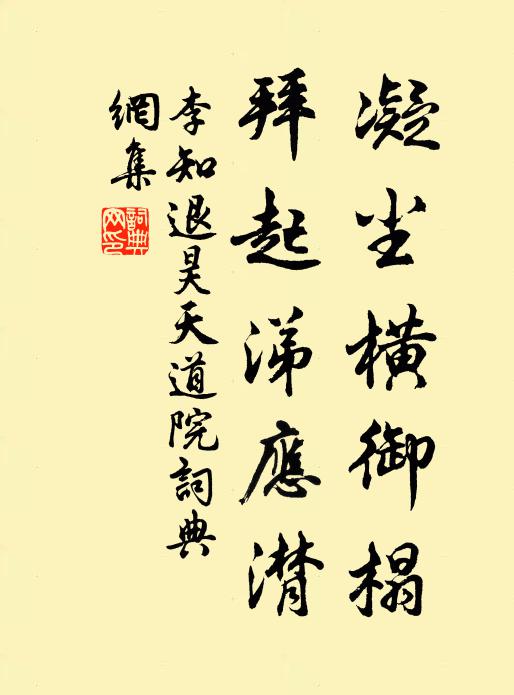 凝尘橫御榻
拜起涕應潸
李知退昊天道院詞典
網集
詞典
网印